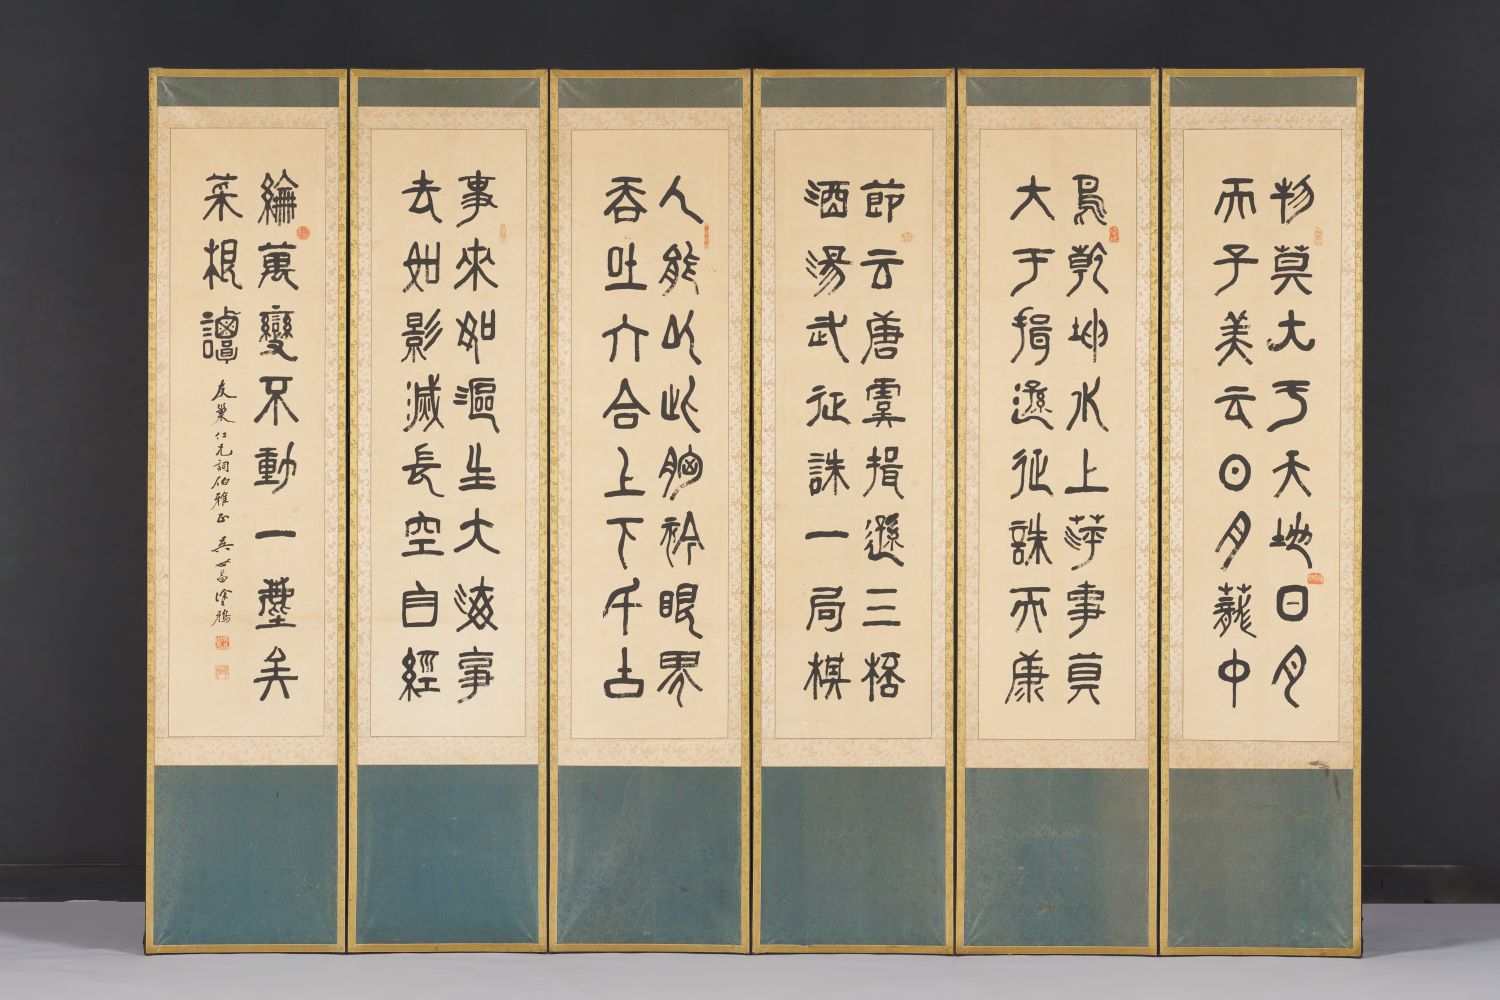 物莫大于天地日月
而子美云日月蘢中
鳥乾坤水上萍事莫
大于揖遜征誅而康
節云唐虞揖遜三桮
酒湯武征誅一局棋
人能以此胸衿眼界
吞吐六合上下千古
事來如漚生大海事
去如影滅長空自經
綸萬變不動一塵矣
菜根譚 友巢仁兄詞伯雅正 吳世昌塗鴉